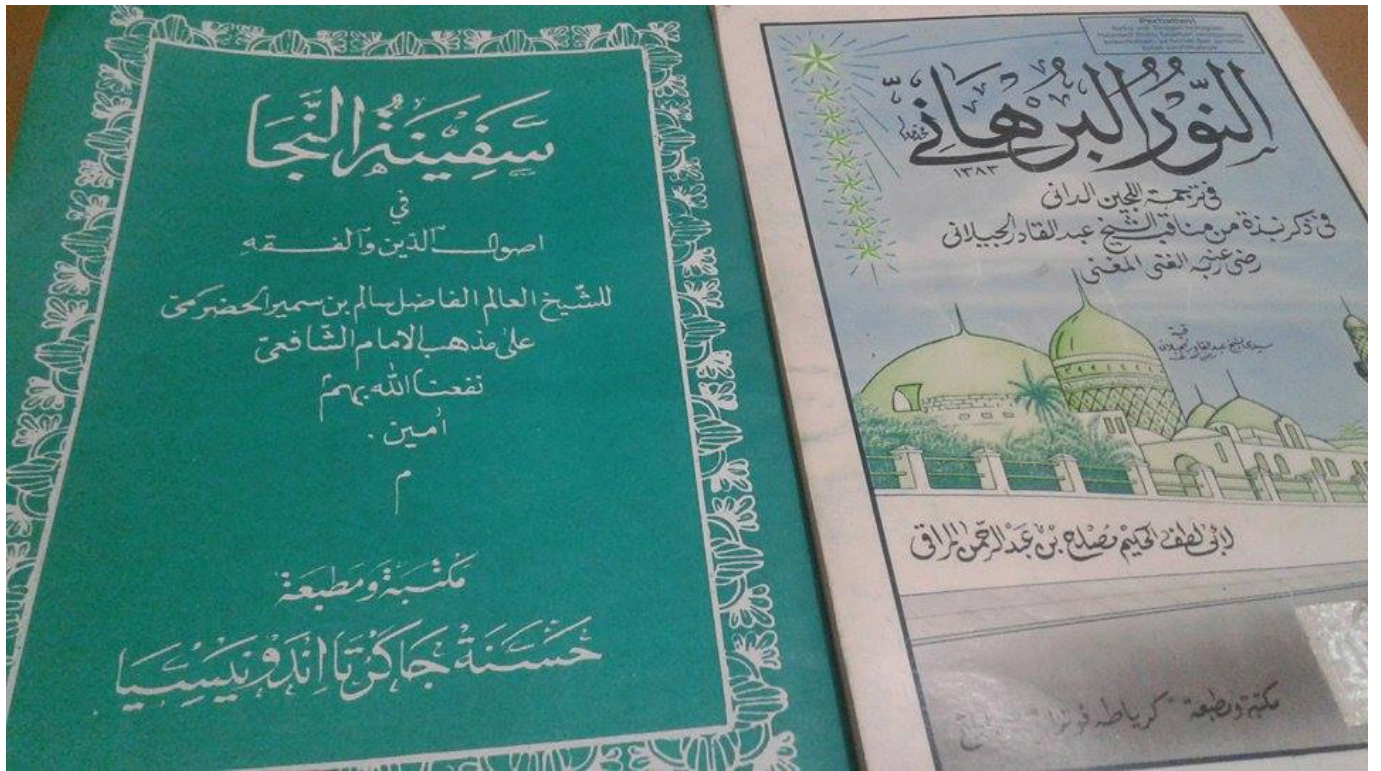 سَفِيْنَةُ النَّجَا
في
اصول الدين والفقه
للشّيخ العالم الفاضل سالم بن سمير الحضرمى
على مذهب الامام الشّافعى
نفعنا الله بهم
أمين .
م
مكتبة ومطبعة
حَسَنَة جَاكَرْتَا اِنْدَونِيسِيَا
Perhatian!
النُّوْرُ الْبُرْهَانِيّ
١٣٨٣
فى ترجمة اللجين الدانى
فى ذكر نبذة من مناقب الشيخ عبد القادر الجيلانى
رضى عنه ربه الغنى المغنى
قبة
سيدى الشيخ عبد القادر الجيلانى
لابى لطف الحكيم مصلح بن عبد الرحمن المراقى
مكتبة ومطبعة كرياطه فوترا